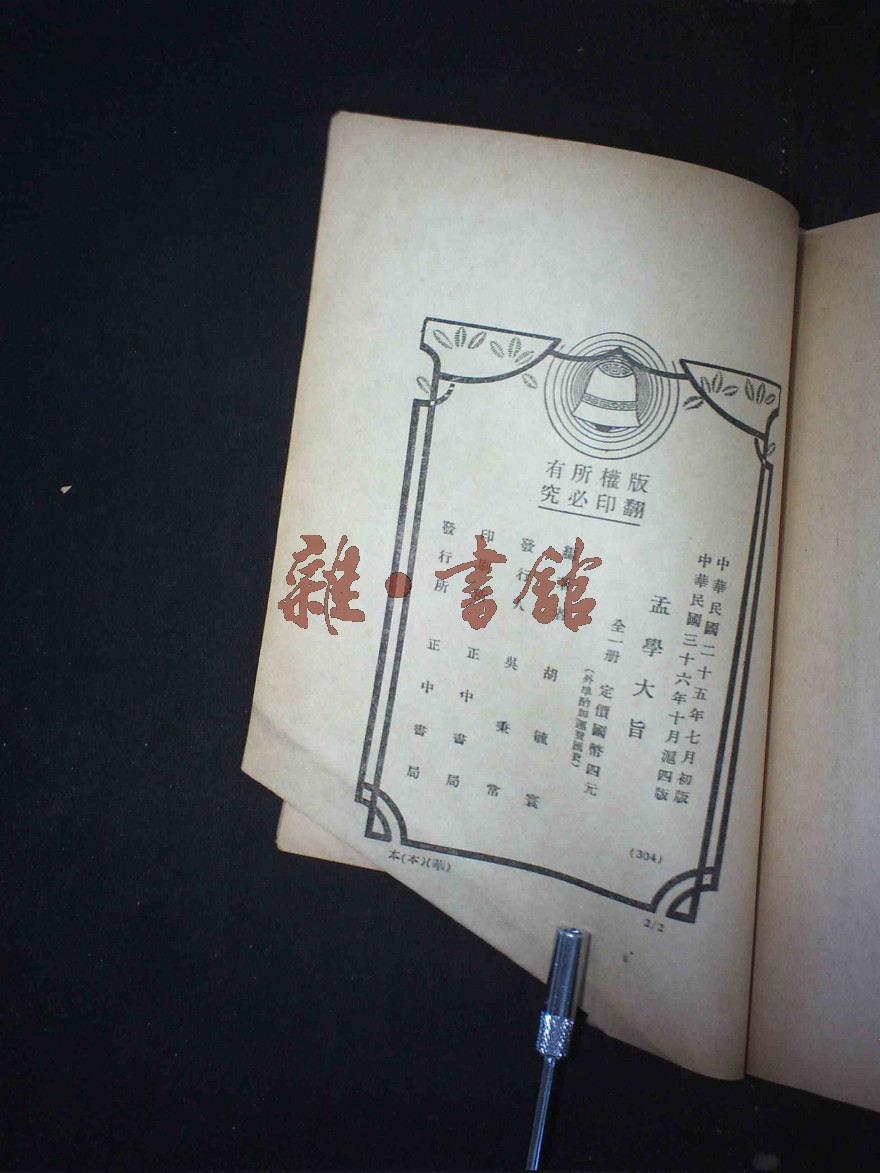 版權所有
翻印必究
中華民國二十五年七月初版
中華民國三十六年十月滬四版
孟學大旨
全一册 定價國幣四元
(外埠酌加運費匯費)
編著者 胡毓寰
發行人 吳秉常
印刷所 正中書局
發行所 正中書局
(304)
2/2
雜·書館